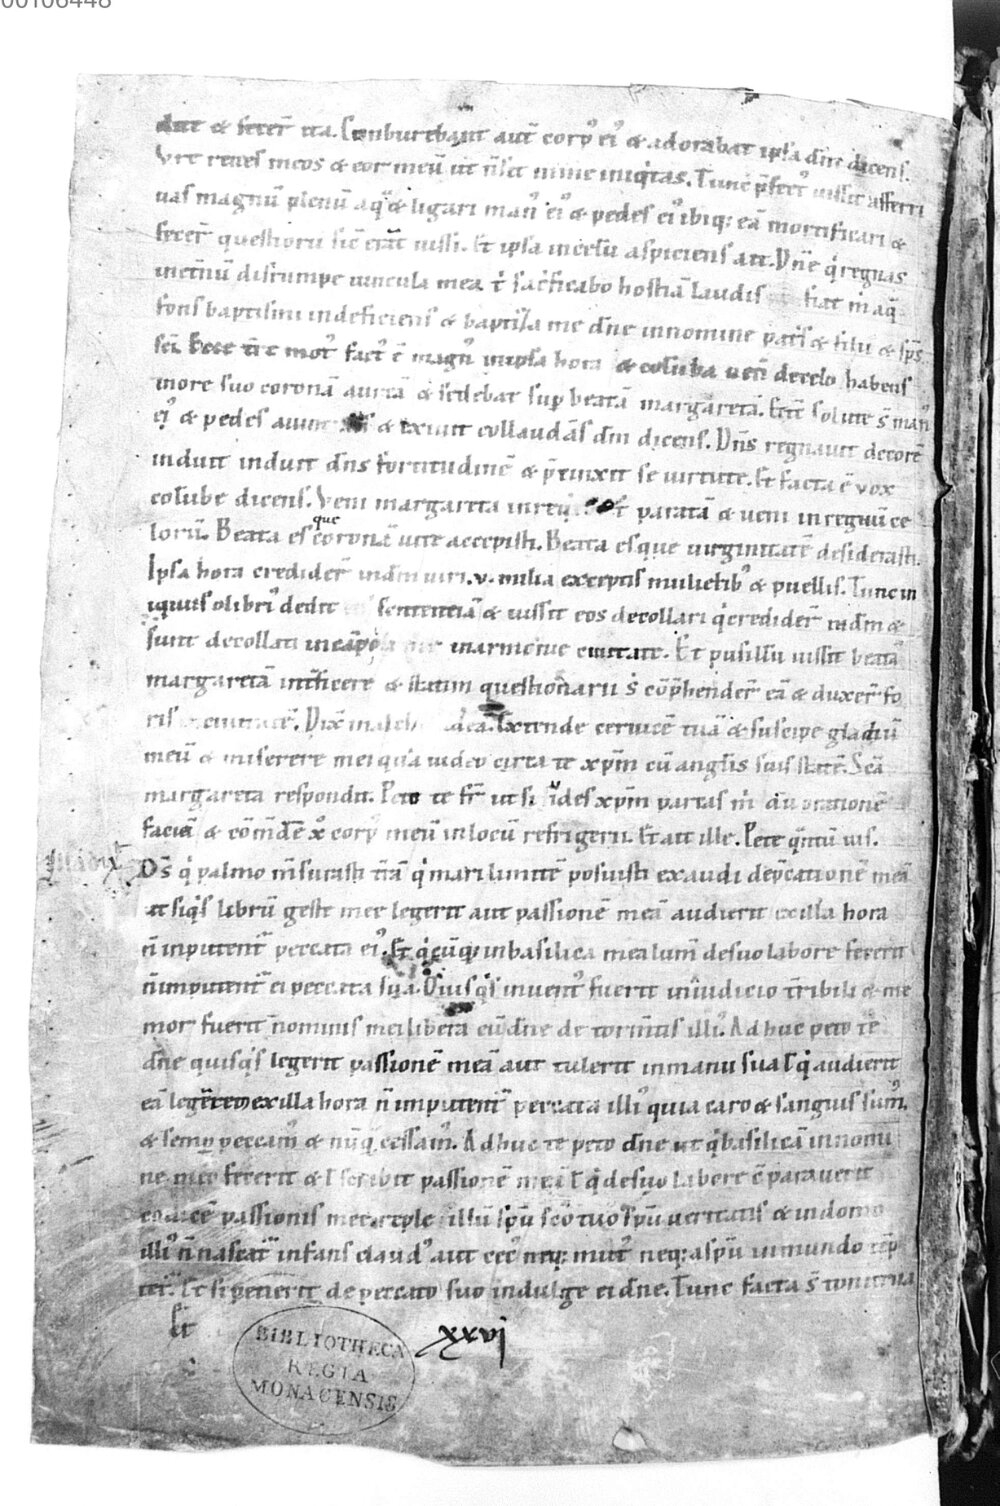 00106448
dūt & fecer̄ ita. Conburebant aut̄ corp᾽ ei᾽ & adorabat ipsa dn̄m dicens.
Vre renes meos & cor meū ut n̄ sit in me iniq̇tas. Tunc p̄fect᾽ iussit afferri
uas magnū plenū aq̄ & ligari man᾽ ei᾽ & pedes ei᾽ ibiq; eā mortificari &
fecer̄ questionarii sic̄ erāt iussi. Et ipsa in celū aspiciens ait. Dn̄e q̇ regnas
inet̄nū disrumpe uincula mea t᾽ sac̄ficabo hostiā laudis fiat m̄ aq̄
fons baptismi indeficiens & baptiza me dn̄e innomine pat̄s & filii & sp̄s
sc̄i. Ecce t̄re mot᾽ fact᾽ ē magn᾽ inipsa hora & colūba uen̄ decelo habens
inore suo coronā aureā & sedebat sup̱ beatā margaretā. Et t̄ solute s̄ man᾽
ei᾽ & pedes & exiuit collaudās dn̄m dicens. Dn̄s regnauit decorē
induit induit dn̄s fortitudinē & p̄cinxit se uirtute. Et facta ē vox
colūbe dicens. Veni margareta inreq̇ē paratā & ueni inregnū ce
lorū. Beata es que coronā uite accepisti. Beata es que uirginitatē desiderasti.
Ipsa hora credider̄ indn̄m uiri .v. milia exceptis mulierib᾽ & puellis. Tunc in
iquus olibri᾽ dedit sententiā & iussit eos decollari q̇ credider̄ indn̄m &
sunt decollati incāpo armenie ciuitate. Et pusillū iussit beatā
margaretā int̄ficere & statim questionarii s̄ cōp̄henderr̄ eā & duxer̄ fo
ris ciuitatē. Dix̄ malch᾽ ad eā. Extende ceruicē tuā & suscipe gladiū
meū & miserere mei quia uideo circa te xp̄m cū angl̄is suis statē. Sc̄a
margareta respondit. Peto te fr̄ ut si uides xp̄m partas m̄ dū orationē
faciā & cōm̄dē xo corp᾽ meū inlocū refrigerii. Et ait ille. Pete q̄ntū uis.
Ds̄ q̇ palmo m̄surasti t̄rā q̇ mari limitē posuisti exaudi dep̄cationē meā
ut siq̇s librū geste mee legerit aut passionē meā audierit exilla hora
n̄ inputent᾽ peccata ei᾽. Et q̇cūq; inbasilica mea lum̄ desuo labore fecerit
n̄ inputent᾽ ei peccata sua. Quisq̇s inuent᾽ fuerit iniudicio t̄ribili & me
mor fuerit nominis mei libera eū dn̄e de torm̄tis illi᾽. Adhuc peto te
dn̄e quisq̇s legerit passionē meā aut tulerit inmanu sua t᾽ q̇ audierit
eā legere exilla hora n̄ inputent᾽ peccata illi᾽ quia caro & sanguis sum᾽
& semp̱ peccam᾽ & nūq̄ cessam᾽. Adhuc te peto dn̄e ut q̇ basilicā innomi
ne meo fecerit & t᾽ scribit passionē meā t᾽ q̇ desuo labore cōparauerit
codicē passionis mee reple illū sp̄u sc̄o tuo sp̄u ueritatis & indomo
illi᾽ n̄ nascat᾽ infans claud᾽ aut cec᾽ neq; mut᾽ neq; a sp̄u inmundo tēp
tet᾽. Et si petierit de peccato suo indulge ei dn̄e. Tunc facta s̄ tonitrua
Et
xxvi
BIBLIOTHECA
REGIA
MONACENSIS